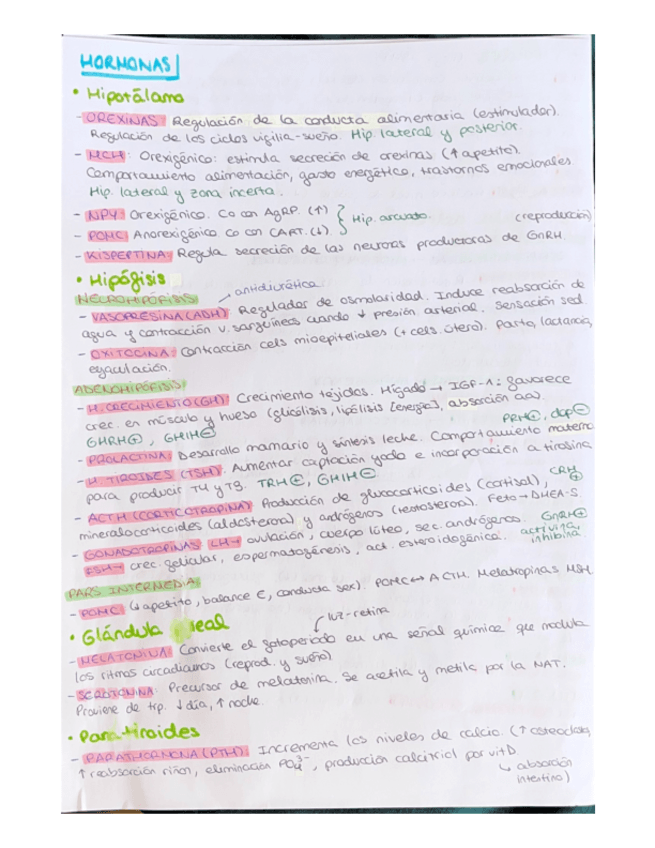 HORMONAS
• Hipotálamo
- OREXINAS: Regulación de la conducta alimentaria (estimulador).
Regulación de los ciclos vigilia-sueño. Hip. lateral y posterior.
- MCH: Orexigénico: estimula secreción de orexinas (↑ apetito).
Comportamiento alimentación, gasto energético, trastornos emocionales.
Hip. lateral y zona incerta.
- NPY: Orexigénico. Co con AgRP. (↑) } Hip. arcuato. (reproducción)
- POMC: Anorexigénico Co con CART. (↓)
- KISPEPTINA: Regula secreción de las neuronas productoras de GnRH.
• Hipófisis
NEUROHIPÓFISIS → antidiurética
- VASOPRESINA (ADH): Regulador de osmolaridad. Induce reabsorción de
agua y contracción v. sanguíneos cuando ↓ presión arterial. Sensación sed.
- OXITOCINA: Contracción cels mioepiteliales (+ cels. útero). Parto, lactancia,
eyaculación.
ADENOHIPÓFISIS:
- H. CRECIMIENTO (GH): Crecimiento tejidos. Hígado → IGF-1: favorece
crec. en músculo y hueso (glicólisis, lipólisis [energía], absorción aa).
GHRH⊕, GHIH⊖ PRH⊕, dop⊖
- PROLACTINA: Desarrollo mamario y síntesis leche. Comportamiento materno
- H. TIROIDES (TSH). Aumentar captación yodo e incorporación a tirosina
para producir T4 y T3. TRH⊕, GHIH⊖ CRH⊕
- ACTH (CORTICOTROPINA) Producción de glucocorticoides (cortisol),
mineralocorticoides (aldosterona) y andrógenos (testosterona). Feto → DHEA-S.
- GONADOTROPINAS LH → ovulación, cuerpo lúteo, sec. andrógenos. GnRH⊕
FSH → crec. folicular, espermatogénesis, act. esteroidogénica. activina, inhibina
PARS INTERMEDIA
- POMC (↓ apetito, balance E, conducta sex). POMC ↔ ACTH. Melatropinas MSH.
• Glándula eal luz-retina
- MELATONINA: Convierte el fotoperiodo en una señal química que modula
los ritmos circadianos (reprod. y sueño)
- SEROTONINA: Precursor de melatonina. Se acetila y metila por la NAT.
Proviene de trp. ↓ día, ↑ noche.
• Paratiroides
- PARATHORMONA (PTH): Incrementa los niveles de calcio. (↑ osteoclastos,
↑ reabsorción riñón, eliminación PO₄³⁻, producción calcitriol por vit D
↳ absorción
intestino)